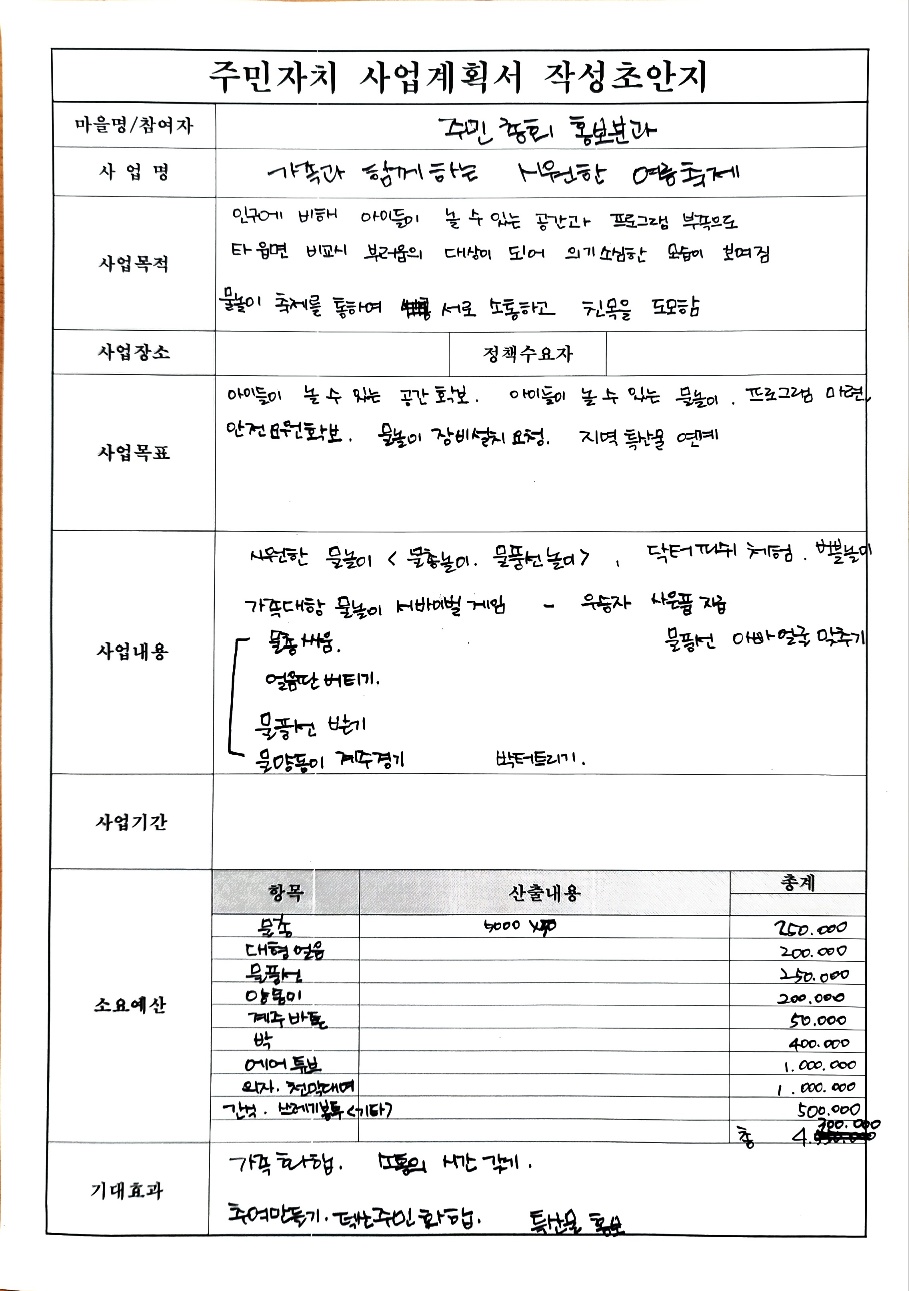 주민자치 사업계획서 작성초안지
마을명/참여자 주민총회 홍보분과
사 업 명 가족과 함께하는 시원한 여름축제
사업목적
인구에 비해 아이들이 놀 수 있는 공간과 프로그램 부족으로
타 읍면 비교시 부러움의 대상이 되어 의기소심한 모습이 보여짐
물놀이 축제를 통하여 서로 소통하고 친목을 도모함
사업장소 정책수요자
사업목표
아이들이 놀 수 있는 공간확보. 아이들이 놀 수 있는 물놀이. 프로그램 마련,
안전요원확보. 물놀이 장비설치 요청. 지역특산물 연계
사업내용
시원한 물놀이 < 물총놀이. 물풍선놀이 > , 닥터피쉬 체험. 버블놀이
가족대항 물놀이 서바이벌 게임 - 우승자 사은품 지급
물총싸움. 물풍선 아빠얼굴 맞추기
얼음판 버티기.
물풍선 받기
물양동이 계주경기 박터트리기.
사업기간
소요예산
항목 산출내용 총계
물총 5000 x50 250.000
대형얼음 200.000
물풍선 250.000
양동이 200.000
계주바톤 50.000
박 400.000
에어튜브 1.000.000
의자. 천막대여 1.000.000
간식. 쓰레기봉투<기타> 500.000
총 4.300.000
기대효과
가족화합. 소통의 시간 갖기.
추억만들기. 주민화합. 특산물 홍보